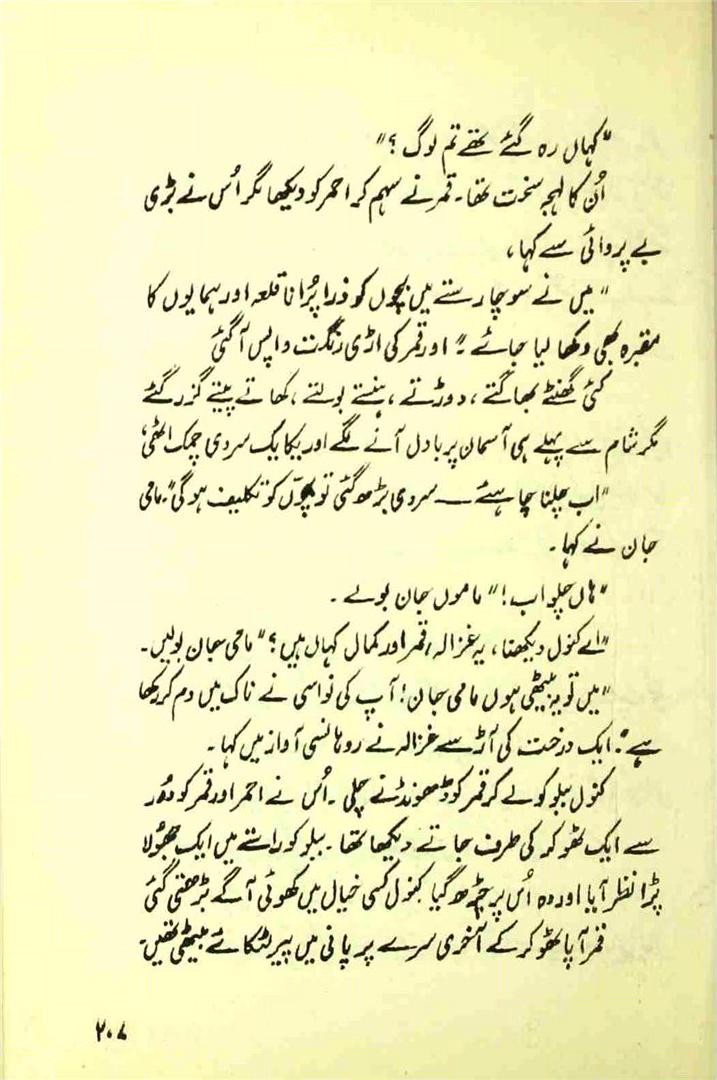 "کہاں رہ گئے تھے تم لوگ ؟"
اُن کا لہجہ سخت تھا۔ قمر نے سہم کر احمر کو دیکھا مگر اُس نے بڑی
بے پروائی سے کہا،
"میں نے سوچا رستے میں بچوں کو ذرا پُرانا قلعہ اور ہمایوں کا
مقبرہ بھی دکھا لیا جائے۔" اور قمر کی اڑی رنگت واپس آ گئی
کئی گھنٹے بھاگتے ، دوڑتے ، ہنستے بولتے ، کھاتے پیتے گزر گئے
مگر شام سے پہلے ہی آسمان پر بادل آنے لگے اور یکایک سردی چمک اٹھی،
"اب چلنا چاہئے ــــ سردی بڑھ گئی تو بچوں کو تکلیف ہو گی"۔ مامی
جان نے کہا۔
"ہاں چلو اب!" ماموں جان بولے ۔
"اے کنول دیکھنا ، یہ غزالہ، قمر اور کمال کہاں ہیں ؟" مامی جان بولیں۔
"میں تو یہ بیٹھی ہوں مامی جان! آپ کی نواسی نے ناک میں دم کر رکھا
ہے"۔ ایک درخت کی آڑ سے غزالہ نے روہانسی آواز میں کہا ۔
کنول ببلو کو لے کر قمر کو ڈھونڈنے چلی ۔ اُس نے احمر اور قمر کو دُور
سے ایک ٹھوکر کی طرف جاتے دیکھا تھا۔ ببلو کو راستے میں ایک جھُولا
پڑا نظر آیا اور وہ اُس پر چڑھ گیا کنول کسی خیال میں کھوئی آگے بڑھتی گئی
قمر آپا ٹھوکر کے آخری سرے پر پانی میں پیر لٹکائے بیٹھی تھیں۔
۲۰۷